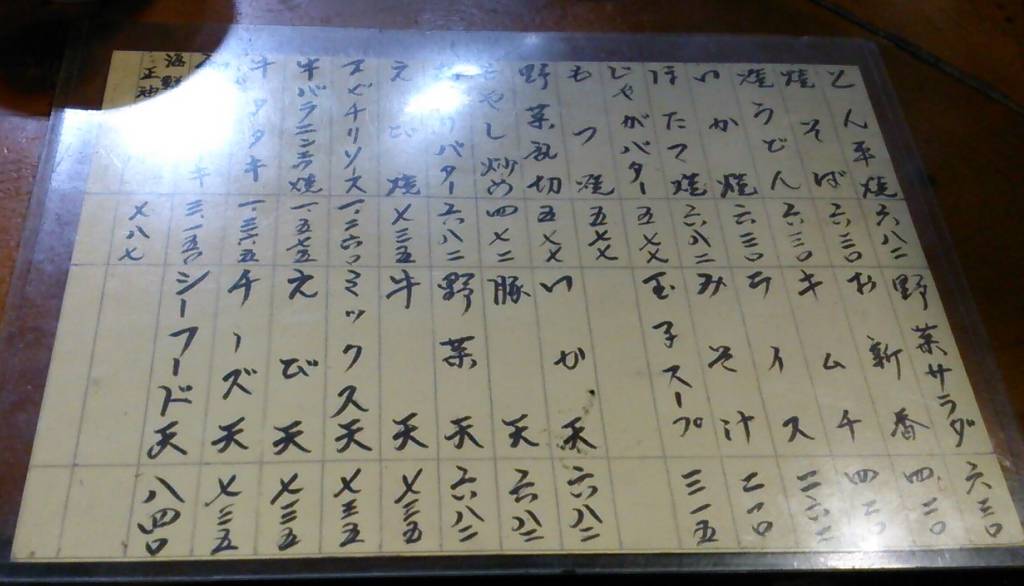 とん平焼 六八二
焼そば 六三〇
焼うどん 六三〇
いか焼 六三〇
ほたて焼 六八二
じゃがバター 五七七
もつ焼 五七七
野菜乱切 五七七
もやし炒め 四七二
バター 六八二
えび焼 七三五
チリソース 一、二六〇
牛バラニンニク焼 一、五七五
牛タタキ 一、三六五
キ 三、一五〇
海鮮 七八七
野菜サラダ 六三〇
お新香 四二〇
キムチ 四二〇
ライス 二六二
みそ汁 二一〇
玉子スープ 三一五
いか天 六八二
豚天 六八二
野菜天 六八二
牛天 七三五
ミックス天 七三五
えび天 七三五
チーズ天 七三五
シーフード天 八四〇